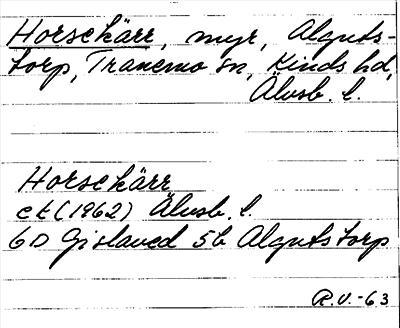 Horsekärr, myr, Alguts-
torp, Tranemo sn, Kinds hd,
Älvsb. l.
Horsekärr
ek (1962) Älvsb. l.
6D Gislaved 5b Algutstorp
R.V.-63